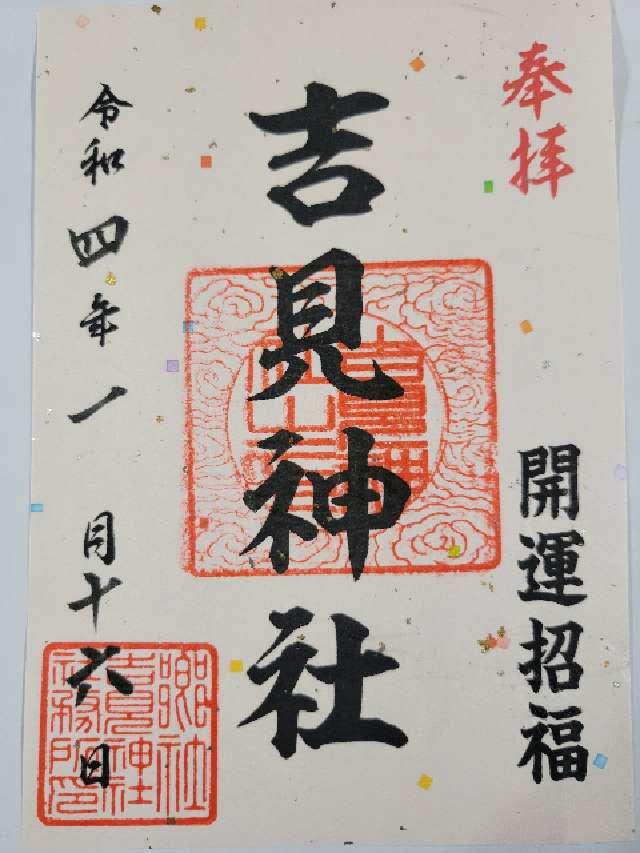 奉拝
開運招福
吉見神社
令和四年一月十六日
郷社
吉見神社
社務所印